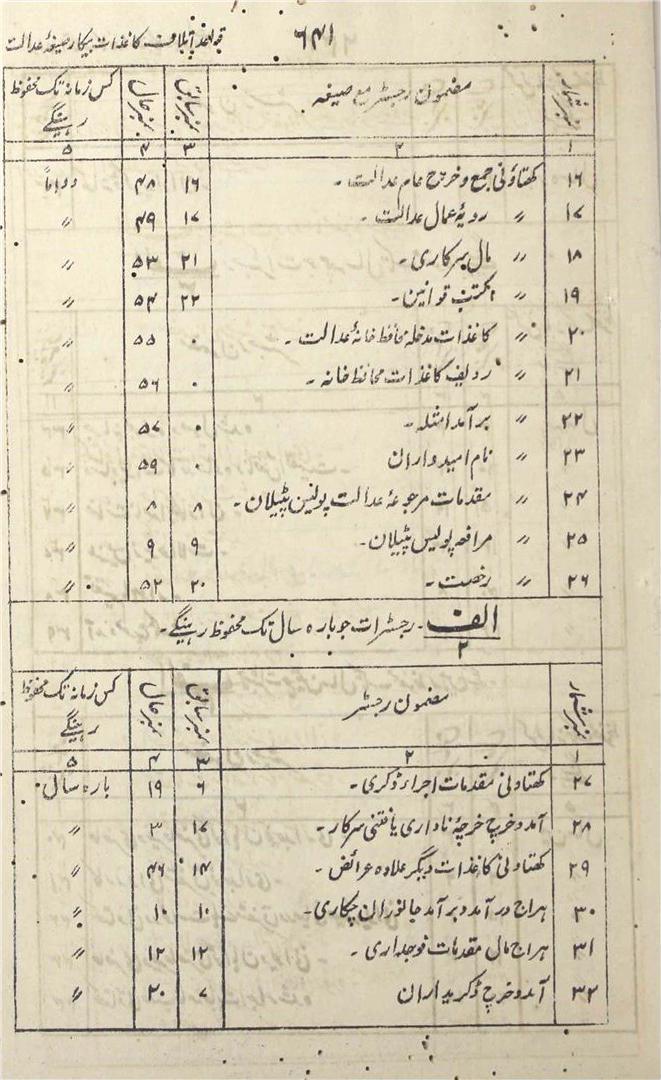 ۶۴۱
قواعد اتلاف کاغذات بیکار صیغۂ عدالت
نمبر شمار مضمون رجسٹر مع صیغہ نمبر سابق نمبر حال کس زمانہ تک محفوظ رہینگے
۱ ۲ ۳ ۴ ۵
۱۶ کھتاؤنی جمع و خرچ عام عدالت ۔ ۱۶ ۴۸ دواماً
۱۷ 〃 رویۂ عمال عدالت ۔ ۱۷ ۴۹ 〃
۱۸ 〃 مال سرکاری ۔ ۲۱ ۵۳ 〃
۱۹ 〃 کتب قوانین ۔ ۲۲ ۵۴ 〃
۲۰ 〃 کاغذات مدخلہ محافظ خانۂ عدالت ۔ ۰ ۵۵ 〃
۲۱ 〃 ردیف کاغذات محافظ خانہ ۔ ۰ ۵۶ 〃
۲۲ 〃 برآمد امثلہ ۔ ۰ ۵۷ 〃
۲۳ 〃 نام امیدواران ۰ ۵۹ 〃
۲۴ 〃 مقدمات مرجوعۂ عدالت پولیس پٹیلان ۔ ۸ ۸ 〃
۲۵ 〃 مرافعہ پولیس پٹیلان ۔ ۹ ۹ 〃
۲۶ 〃 رخصت ۔ ۲۰ ۵۲ 〃
الف ۲ ۔ رجسٹرات جو بارہ سال تک محفوظ رہینگے ۔
نمبر شمار مضمون رجسٹر نمبر سابق نمبر حال کس زمانہ تک محفوظ رہینگے
۱ ۲ ۳ ۴ ۵
۲۷ کھتاونی مقدمات اجراء ڈگری ۔ ۶ ۱۹ بارہ سال
۲۸ آمد و خرچ خرچۂ ناداری یافتنی سرکار ۔ ۱۷ ۳ 〃
۲۹ کھتاونی کاغذات دیگر علاوہ عرائض ۔ ۱۴ ۴۶ 〃
۳۰ ہراج در آمد و برآمد جانوران چکاری ۔ ۱۰ ۱۰ 〃
۳۱ ہراج مال مقدمات فوجداری ۔ ۱۲ ۱۲ 〃
۳۲ آمد و خرچ ڈگریداران ۷ ۲۰ 〃